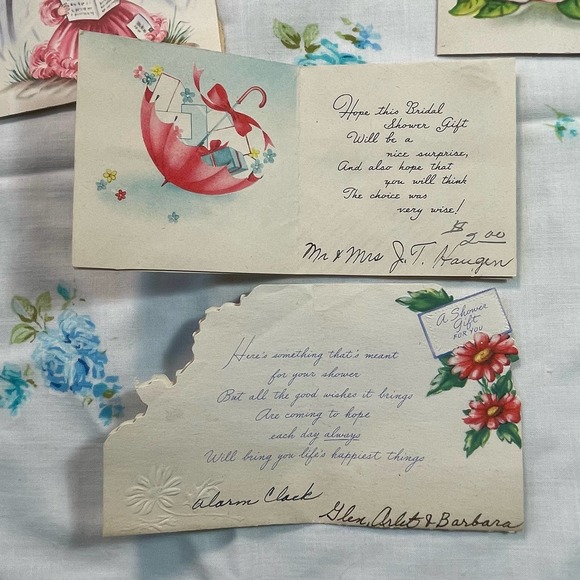 Hope this Bridal
Shower Gift
Will be a
nice surprise,
And also hope that
you will think
The choice was
very wise!
$2.00
Mr & Mrs J.T. Haugen
A Shower
Gift
FOR YOU
Here's something that's meant
for your shower
But all the good wishes it brings
Are coming to hope
each day always
Will bring you life's happiest things
Alarm Clock
Glen, Arlet & Barbara